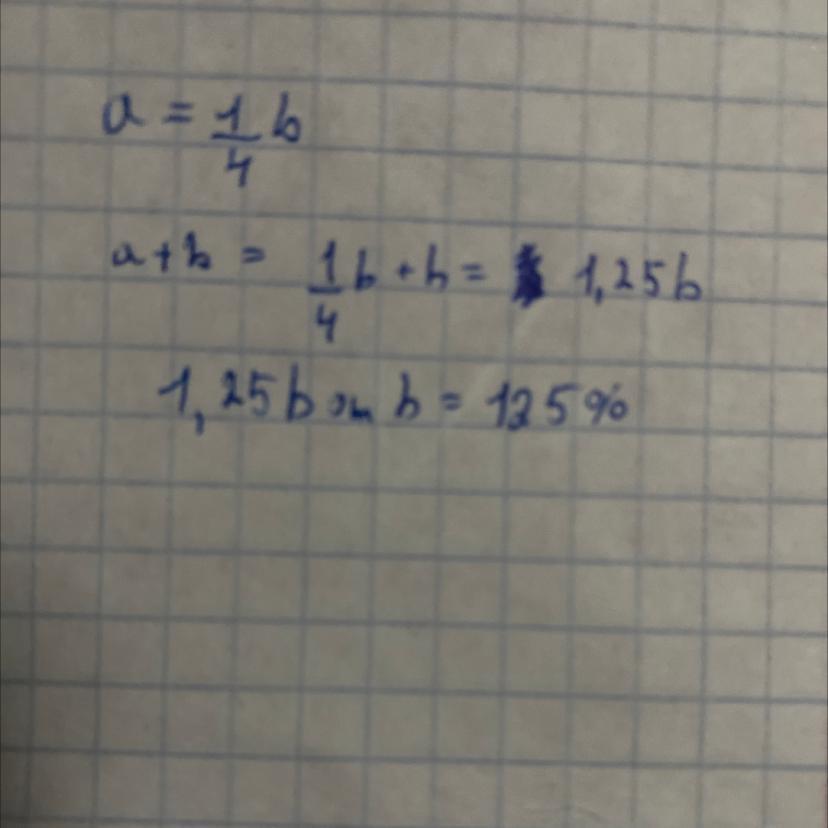 a = 1/4 b
a + b = 1/4 b + b = 1,25b
1,25b от b = 125%